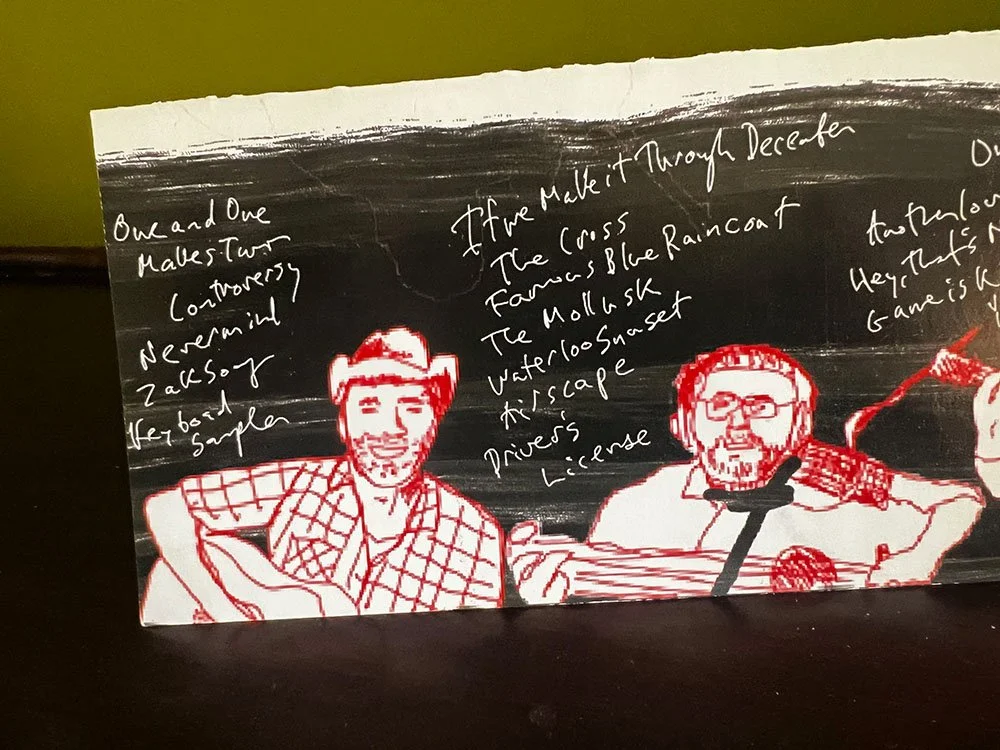 One and One
Makes Two
Controversy
Nevermind
Zak Song
Keyboad
Sampler
If we Make it Through December
The Cross
Famous Blue Raincoat
The Mollusk
Waterloo Sunset
Airscape
Drivers
License
Another lov
Hey, That's N
Game is K